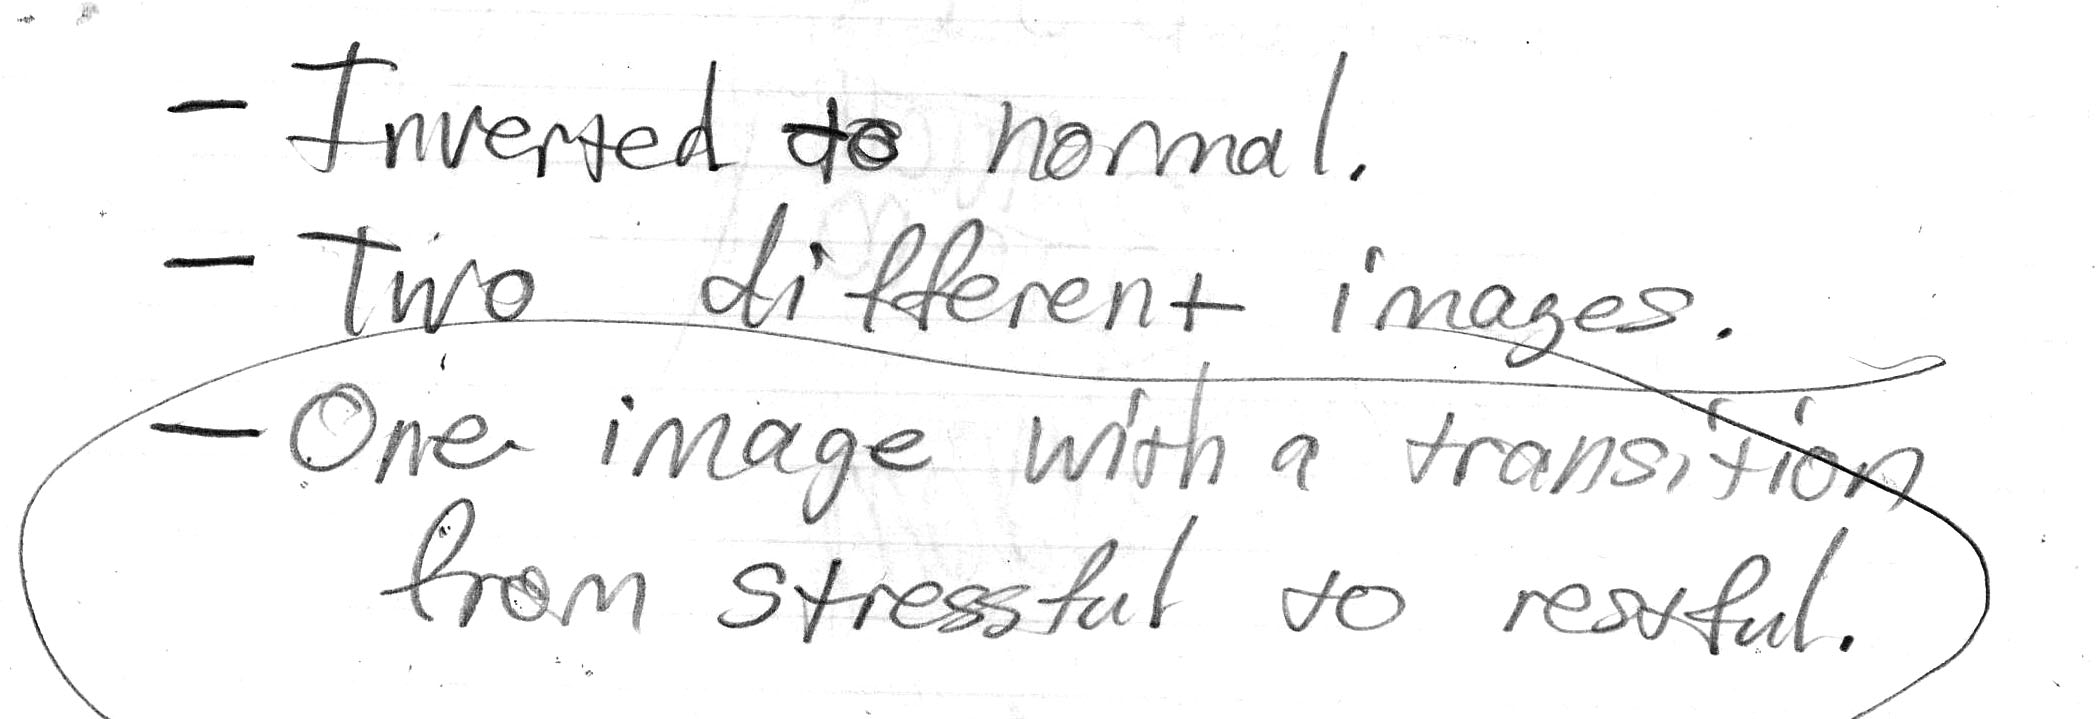 - Inverted to normal.
- Two different images.
- One image with a transition
from stressful to restful.